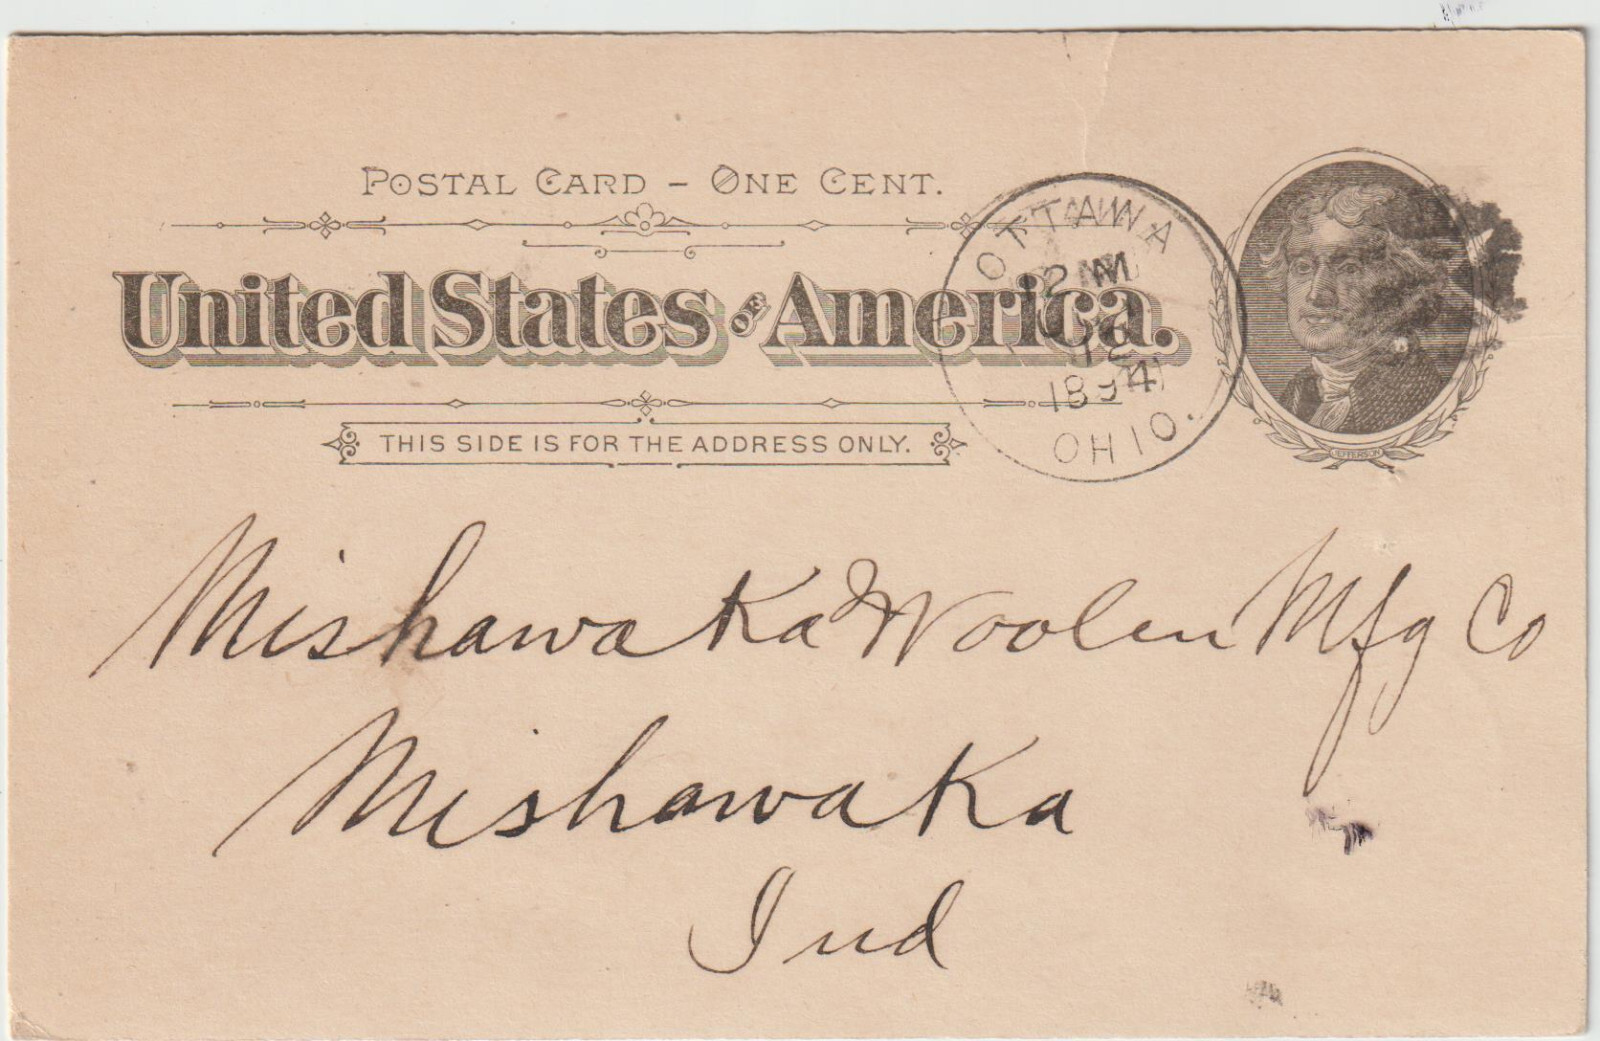 POSTAL CARD – ONE CENT.
United States OF America.
THIS SIDE IS FOR THE ADDRESS ONLY.
OTTAWA
1894
OHIO.
JEFFERSON
Mishawaka Woolen Mfg Co
Mishawaka
Ind